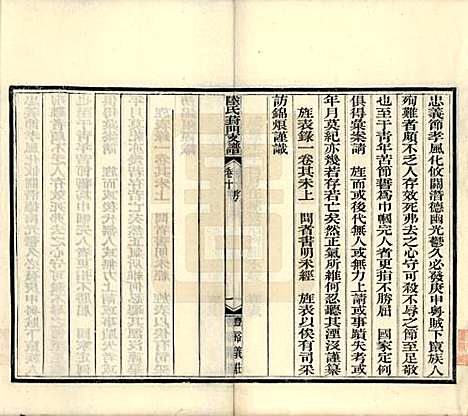 忠義節孝風化攸關潛德幽光鬱久必發庚申粵賊下竄族人
殉難者頗不乏人存效死弗去之心守可殺不辱之節至
也至于青年苦節譽為巾幗完人者更指不勝屈　國家定例
俱得彙案請　旌而或後代無人或無力上請或事蹟失考或
年月莫紀亦幾若存若亡矣然正氣所維何忍聽其湮沒謹纂
旌表錄一卷其未上　聞者書明未經　旌表以俟有司采
訪錦烺謹識
陸氏葑門支譜
卷十
一
豐裕義莊